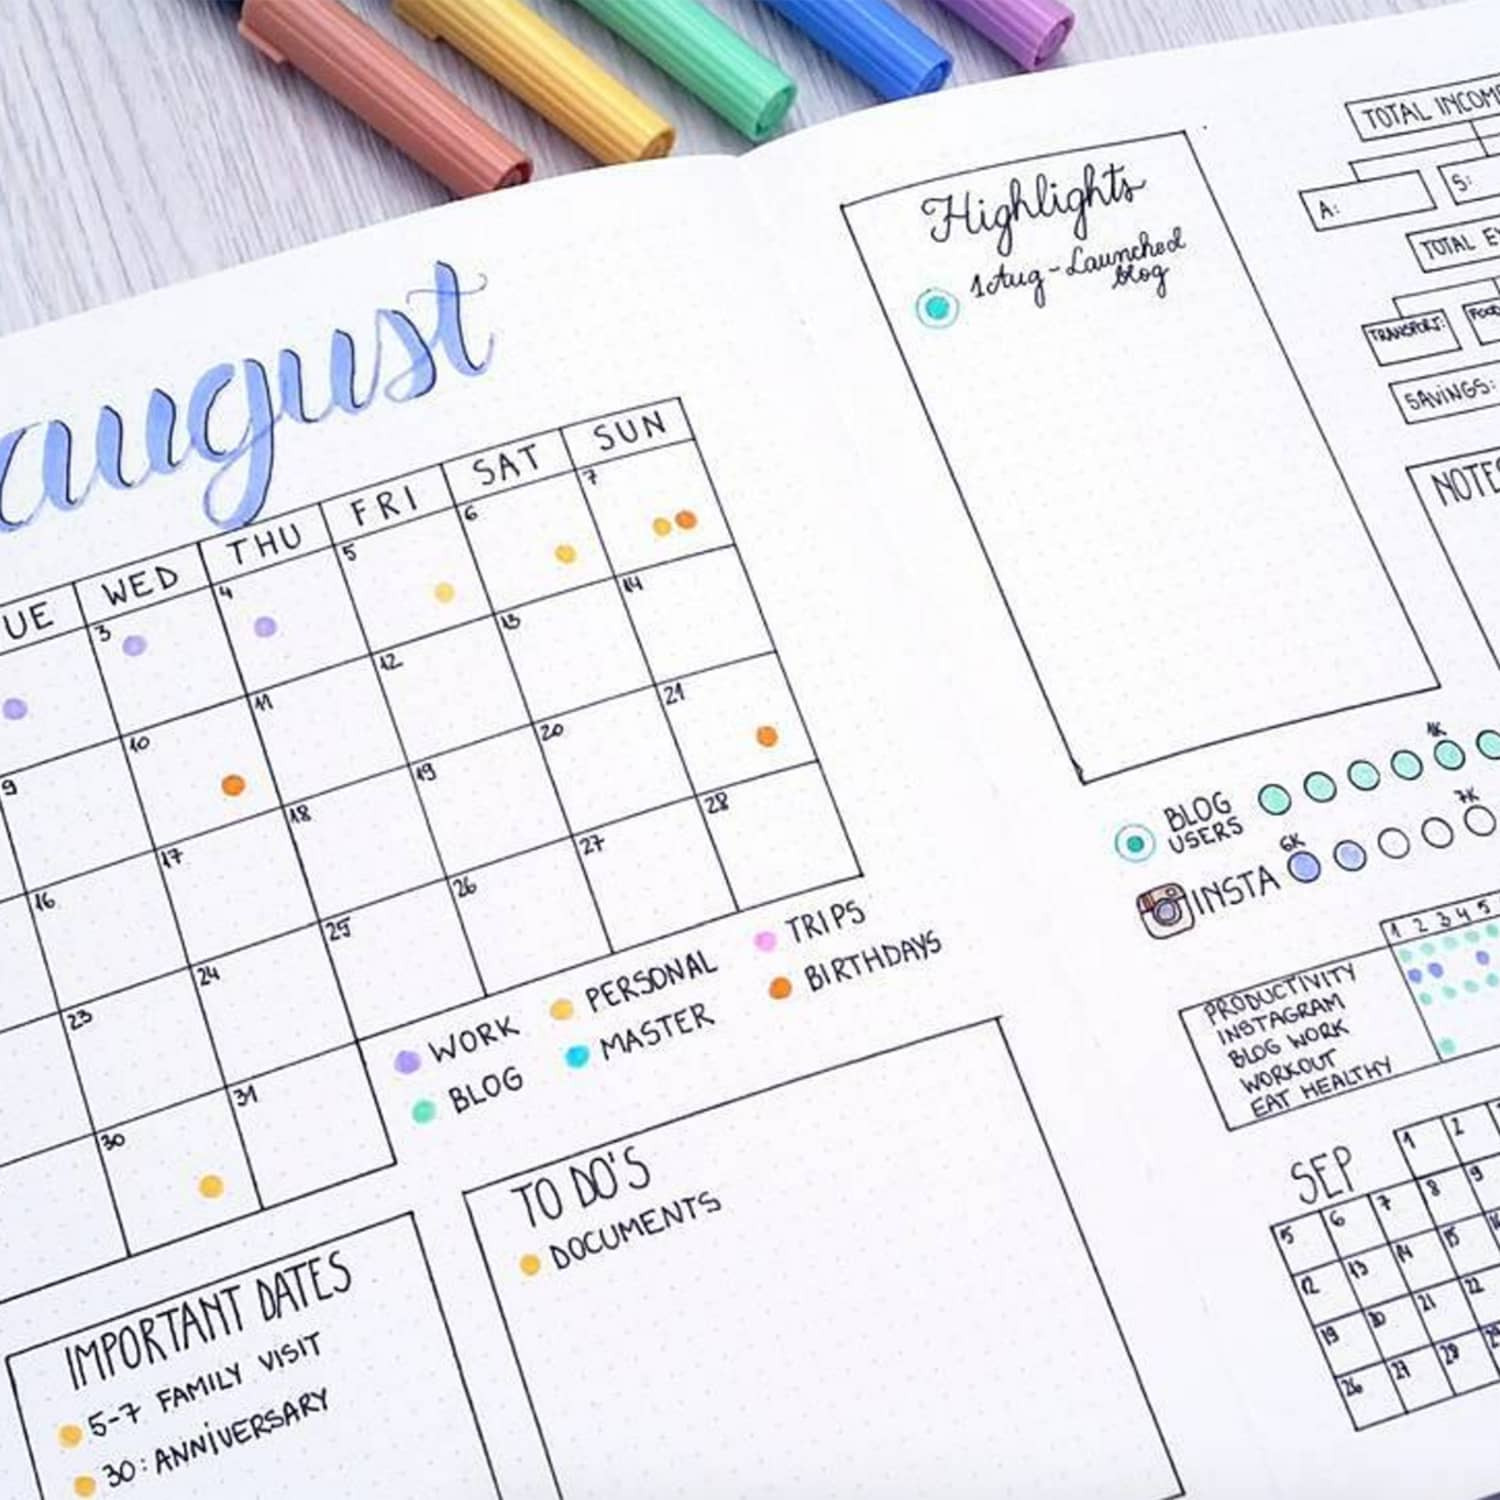 august
UE WED THU FRI SAT SUN
3 4 5 6 7
9 10 11 12 13 14
16 17 18 19 20 21
23 24 25 26 27 28
30 31
WORK
PERSONAL
TRIPS
BLOG
MASTER
BIRTHDAYS
IMPORTANT DATES
5-7 FAMILY VISIT
30: ANNIVERSARY
TO DO'S
DOCUMENTS
Highlights
1 Aug - Launched
blog
TOTAL INCOM
A:
S:
TOTAL E
TRANSPORT:
SAVINGS:
NOTES
1K
BLOG
USERS
6K 7K
INSTA
1 2 3 4 5
PRODUCTIVITY
INSTAGRAM
BLOG WORK
WORKOUT
EAT HEALTHY
SEP
1 2
5 6 7 8 9
12 13 14 15 16
19 20 21 22
26 27 28 29